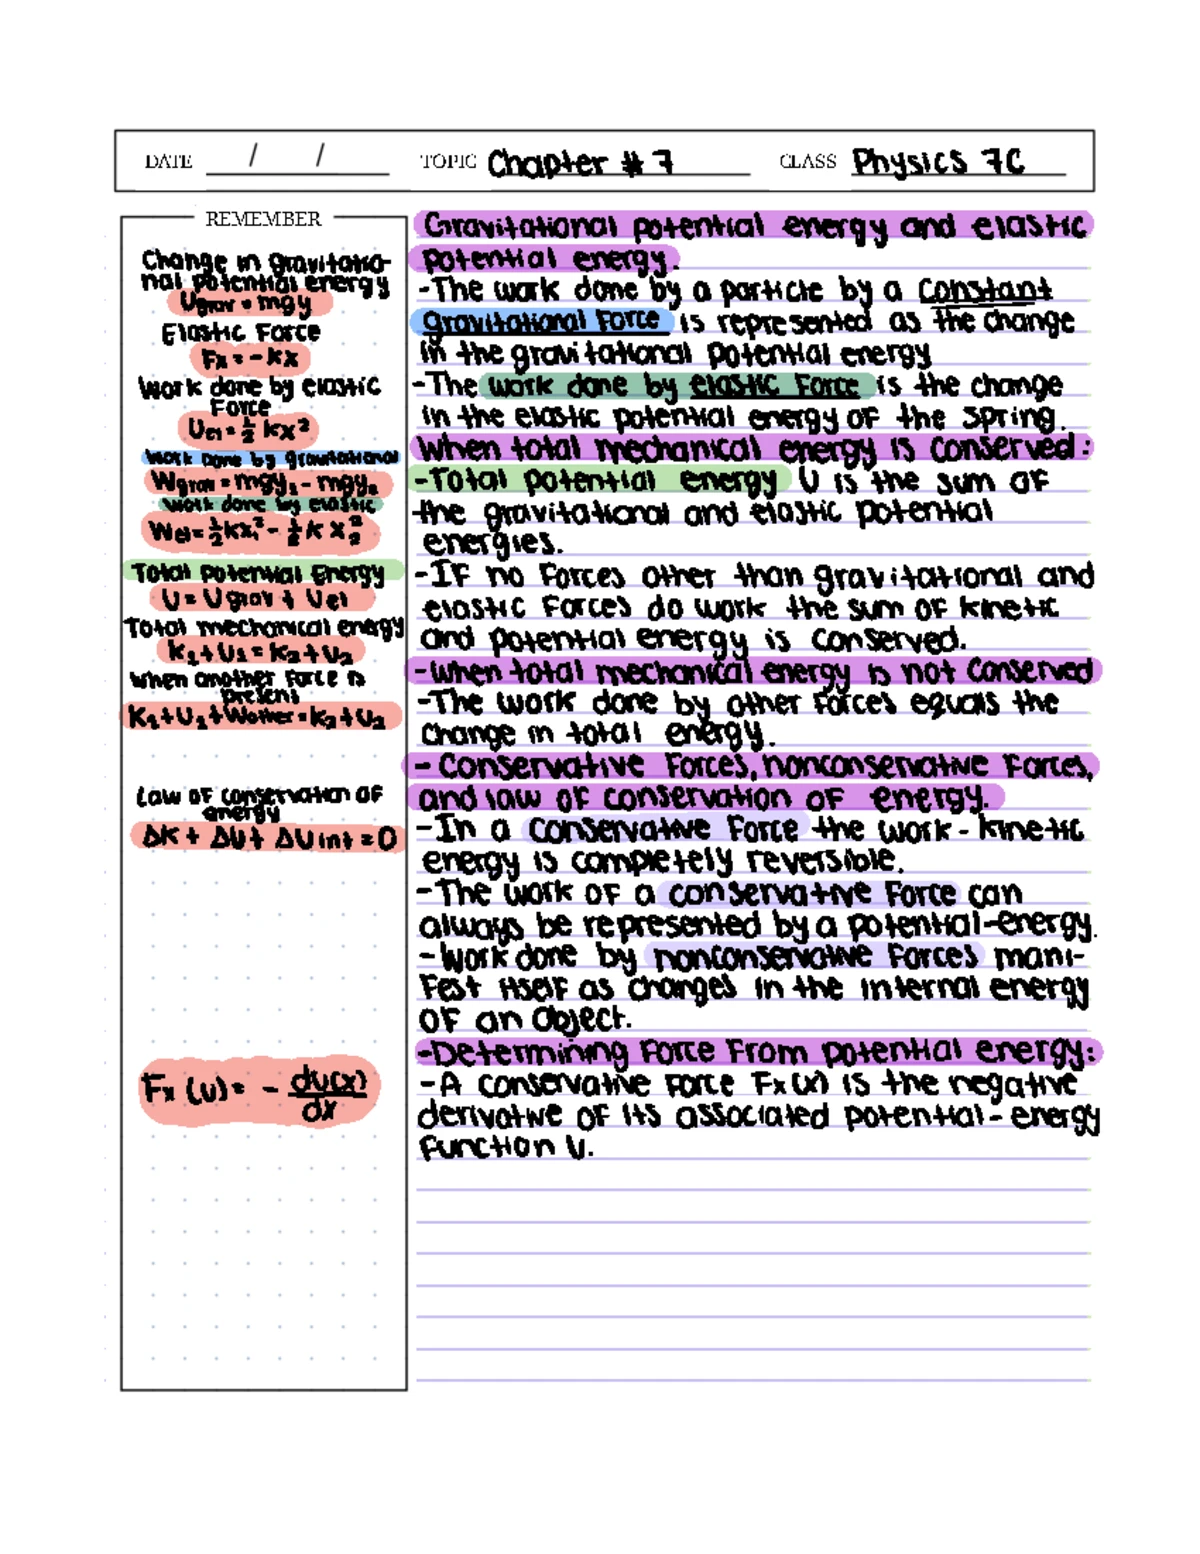 DATE / / TOPIC Chapter # 7 CLASS Physics 7C
REMEMBER
Change in gravitatio-
nal potential energy
Ugrav = mgy
Elastic Force
Fx = - kx
Work done by elastic
Force
Uel = 1/2 kx²
Work done by gravitational
Wgrav = mgy₁ - mgy₂
Work done by elastic
Wel = 1/2 kx₁² - 1/2 k x₂²
Total Potential Energy
U = Ugrav + Uel
Total mechanical energy
K₁ + U₁ = K₂ + U₂
When another Force is
present
K₁ + U₁ + Wother = K₂ + U₂
Law of conservation of
energy
ΔK + ΔU + ΔU int = 0
Fx (U) = - dU(x)/dx
Gravitational potential energy and elastic
potential energy.
-The work done by a particle by a constant
gravitational Force is represented as the change
in the gravitational potential energy
-The work done by elastic Force is the change
in the elastic potential energy of the spring.
When total mechanical energy is conserved:
-Total potential energy U is the sum of
the gravitational and elastic potential
energies.
-If no Forces other than gravitational and
elastic Forces do work the sum of kinetic
and potential energy is conserved.
-When total mechanical energy is not conserved
-The work done by other Forces equals the
change in total energy.
- Conservative Forces, nonconservative Forces,
and law of conservation of energy.
-In a conservative Force the work - kinetic
energy is completely reversible.
-The work of a conservative Force can
always be represented by a potential-energy.
-Work done by nonconservative Forces mani-
Fest itself as changes in the internal energy
of an object.
-Determining Force From potential energy:
-A conservative Force Fx(x) is the negative
derivative of its associated potential-energy
Function U.